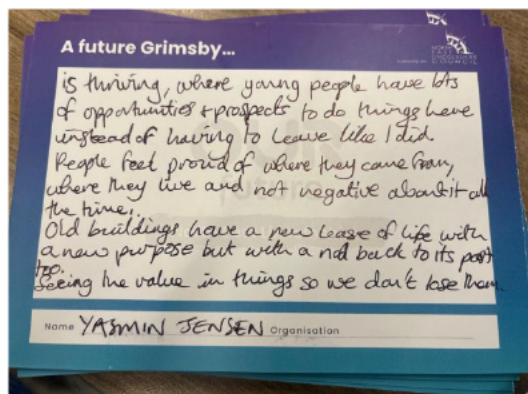 A future Grimsby...
SUPPORTED BY
NORTH
EAST
LINCOLNSHIRE
COUNCIL
is thriving, where young people have lots
of opportunities + prospects to do things here
instead of having to leave like I did.
People feel proud of where they came from,
where they live and not negative about it all
the time.
Old buildings have a new lease of life with
a new purpose but with a nod back to its past
too.
Seeing the value in things so we don't lose them.
Name YASMIN JENSEN Organisation